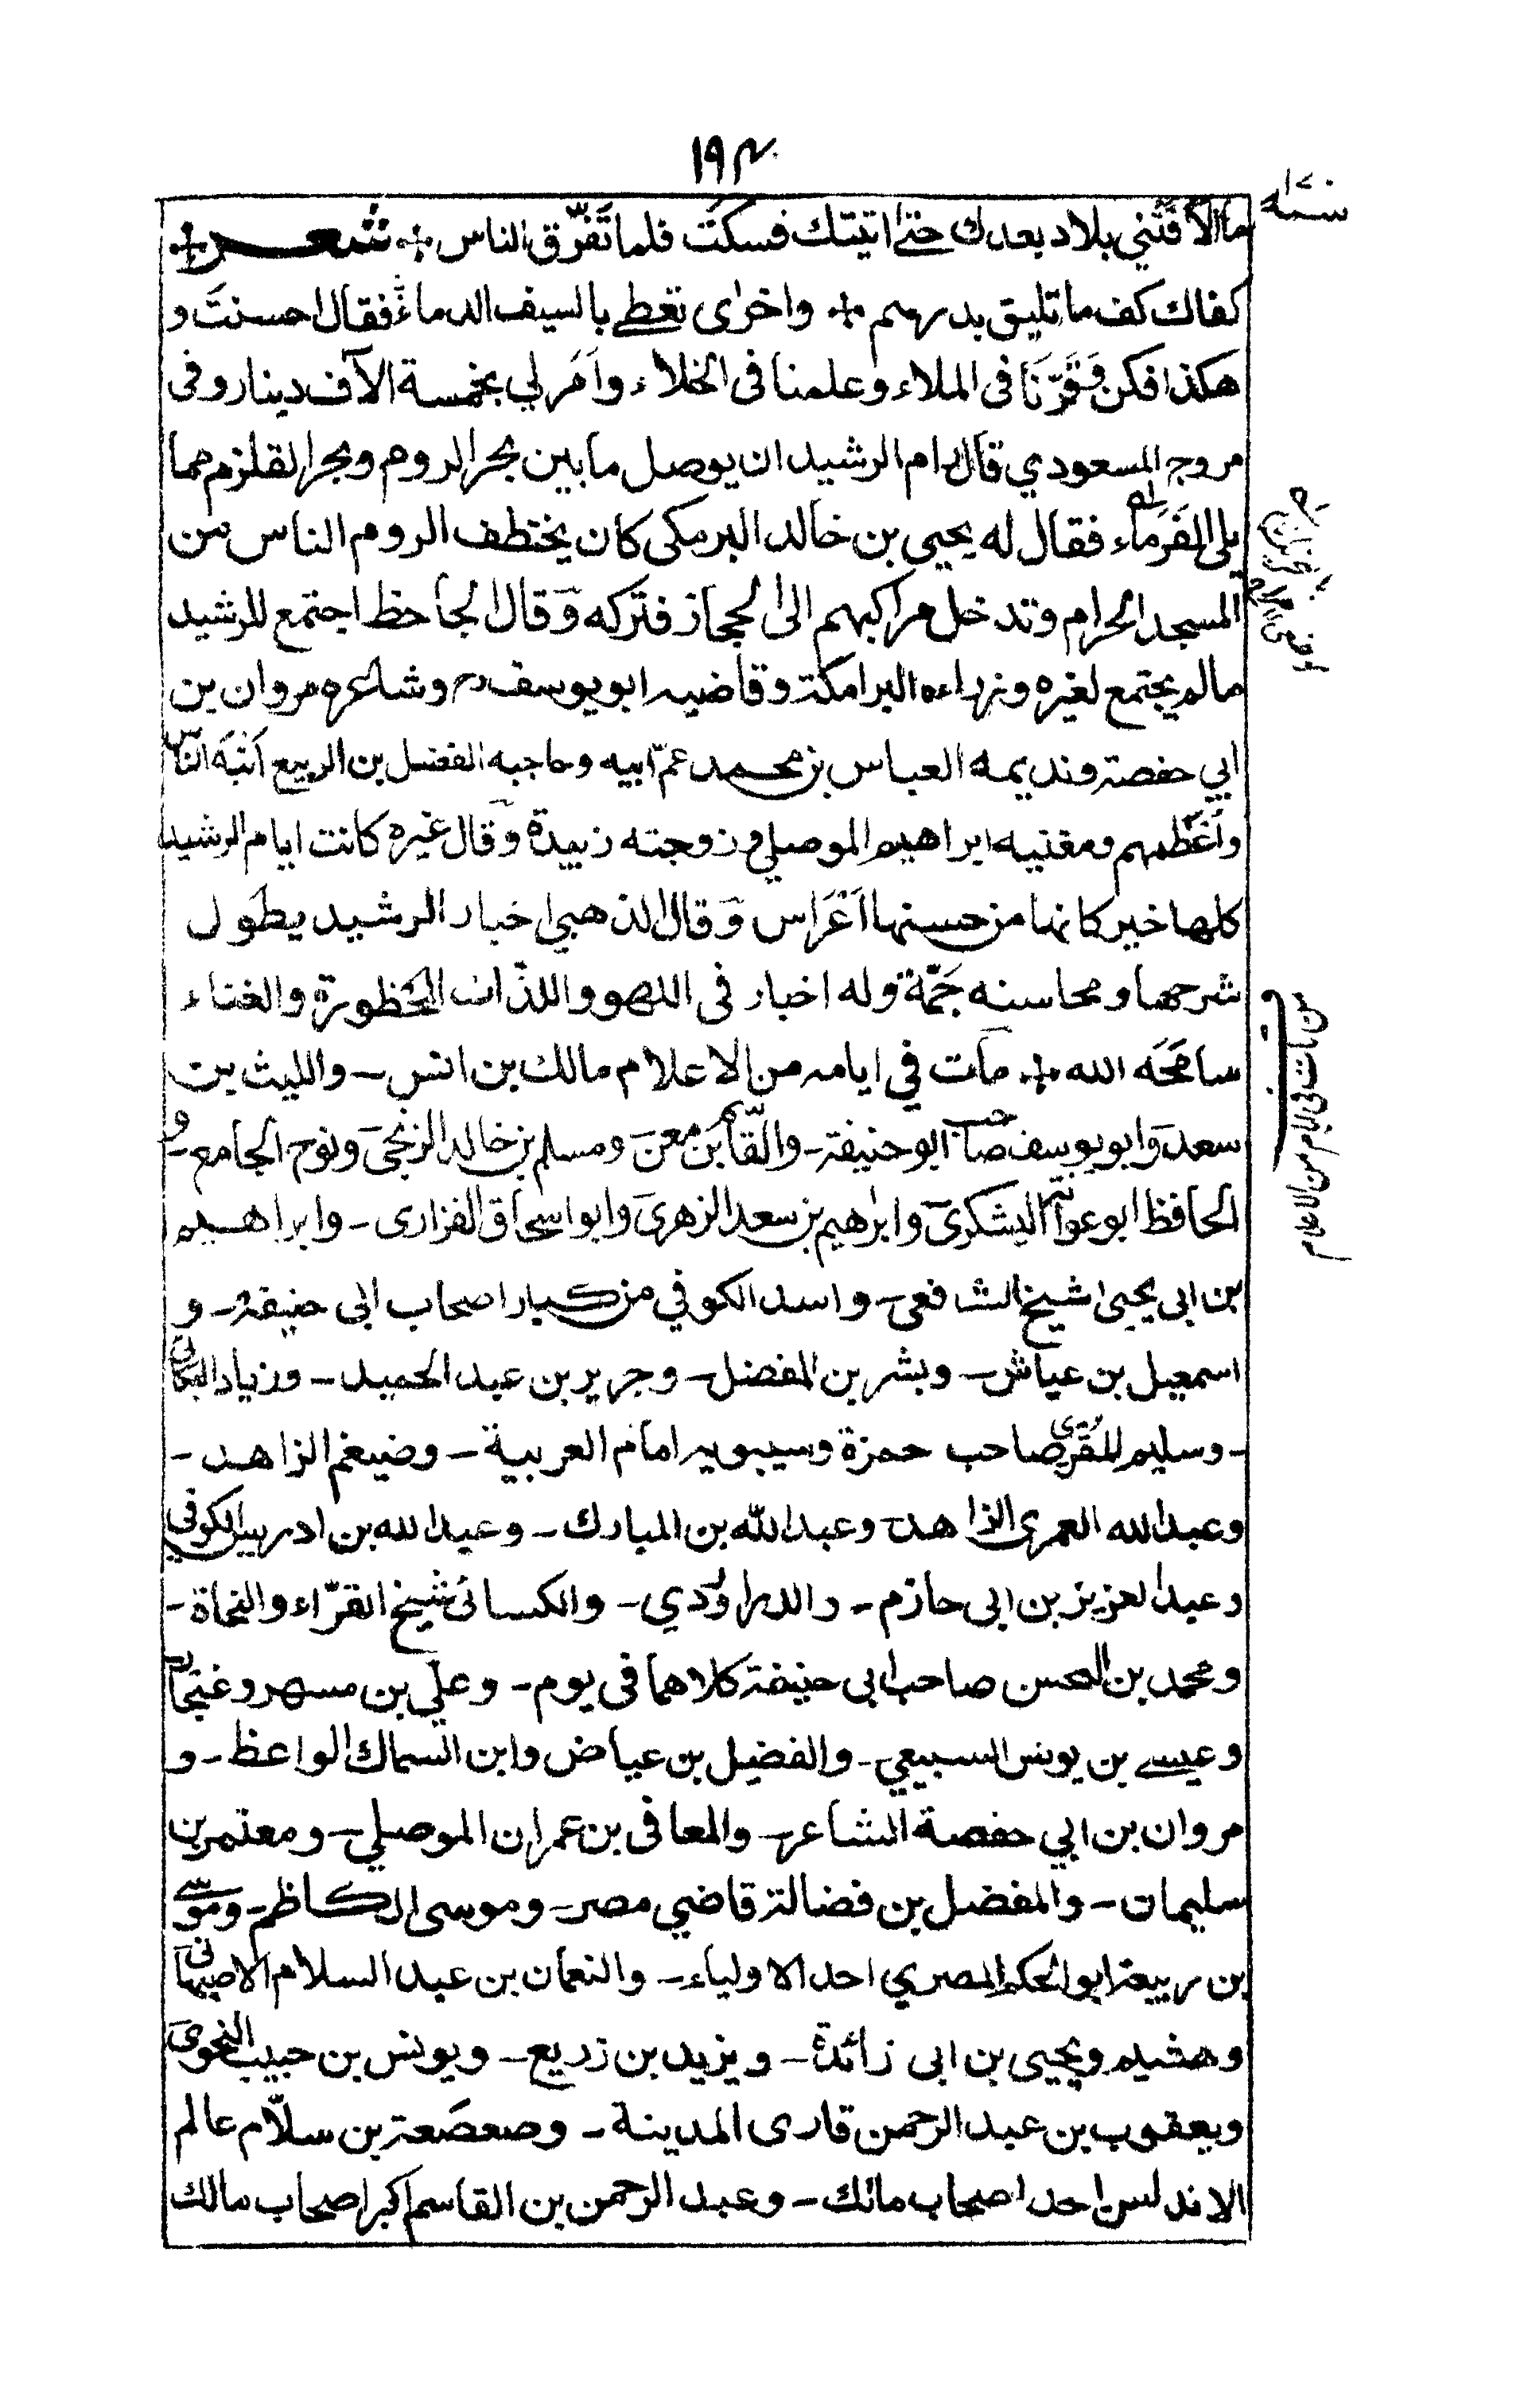 ١٩٣
سنة
ما الاقتني بلاد بعدك حتى اتيتك فسكتَ فلما تَفَرّق الناس ÷ شعر ÷
كفاك كف ما تليق بدرهم ÷ واخرى تعط بالسيف الدماءَ فقال احسنتَ و
هكذا فكن وَقِّرنَا فى الملاء وعلمنا فى الخلاء وأمَر لي بخمسة الآف دينار وفى
مروج المسعودي قال رام الرشيد ان يوصل ما بين بحر الروم وبحر القلزم مما
يلى الفَرَماء فقال له يحيى بن خالد البرمكى كان يختطف الروم الناس من
المسجد الحرام وتدخل مراكبهم الى الحجاز فتركه وقال الجاحظ اجتمع للرشيد
مالم يجتمع لغيره وزراءه البرامكة وقاضيه ابو يوسف رح وشاعره مروان بن
ابي حفصة ونديمه العباس بن محمد عمّ ابيه وحاجبه الفضل بن الربيع أَنْبَه الناس
وأعْظمهم ومغنيه ابراهيم الموصلي وزوجته زبيدة وقال غيره كانت ايام الرشيد
كلها خير كانها من حسنها أعْرَاس وَقال الذهبي اخبار الرشيد يطَول
شرحها ومحاسنه جَمّة وله اخبار فى اللهو واللذّات المحظورة والغناء
سامَحَه الله ÷ مات في ايامه من الاعلام مالك بن انس - والليث بن
سعد وابو يوسف صاحب ابو حنيفة - والقاسم بن معن ومسلم بن خالد الزنجى ونوح الجامع - و
الحافظ ابو عوانة اليشكرى وابرٰهيم بن سعد الزهرى وابو اسحاق الفزارى - وابراهيم
بن ابى يحيى شيخ الشافعى - واسد الكوفي من كبار اصحاب ابى حنيفة - و
اسمعيل بن عياش - وبشر بن المفضل - وجرير بن عبد الحميد - وزياد البكائى
- وسليم المقرى صاحب حمزة وسيبويه امام العربية - وضيغم الزاهد -
وعبد الله العمرى الزاهد - وعبد الله بن المبارك - وعبد الله بن ادريس الكوفي
وعبد العزيز بن ابى حازم - والدراوَردي - والكسائى شيخ القرّاء والنحاة -
ومحمد بن الحسن صاحب ابى حنيفة كلاهما فى يوم - وعلي بن مسهر وغنجار
وعيسى بن يونس السبيعي - والفضيل بن عياض وابن السماك الواعظ - و
مروان بن ابي حفصة الشاعر - والمعافى بن عمران الموصلي - ومعتمر بن
سليمان - والمفضل بن فضالة قاضي مصر - وموسى الكاظم - وموسى
بن ربيعة ابو الحكم المصري احد الاولياء - والنعمان بن عبد السلام الاصبهانى
وهشيم ويحيى بن ابى زائدة - ويزيد بن زريع - ويونس بن حبيب النحوى
ويعقوب بن عبد الرحمن قارى المدينة - وصعصَعة بن سلاّم عالم
الاندلس احد اصحاب مالك - وعبد الرحمن بن القاسم اكبر اصحاب مالك
من مات فى ايام من الاعلام